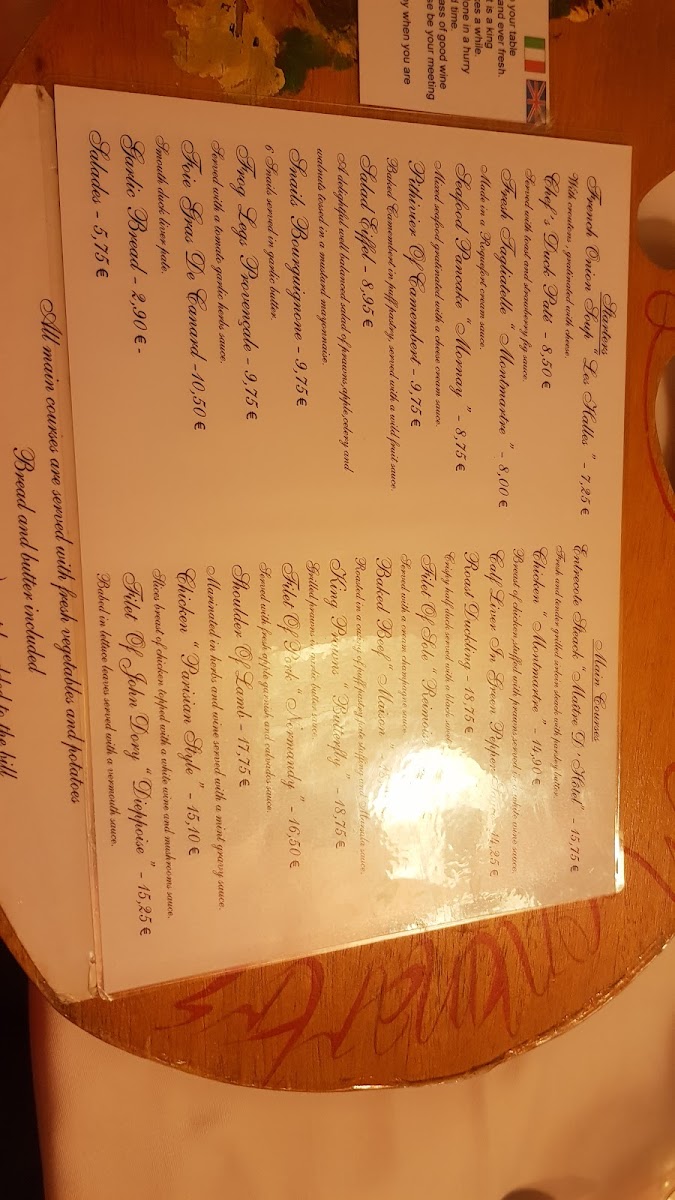 your table
and ever fresh.
is a king
a while.
one in a hurry
time.
ass of good wine
se be your meeting
y when you are
Starters
French Onion Soup "Les Halles" - 7,25 €
With croutons, gratinated with cheese.
Chef's Duck Paté - 8,50 €
Served with toast and strawberry fig sauce.
Fresh Tagliatelle "Montmartre" - 8,00 €
Made in a Roquefort cream sauce.
Seafood Pancake "Mornay" - 8,75 €
Mixed seafood gratinated with a cheese cream sauce.
Pithivier Of Camembert - 9,75 €
Baked Camembert in puff pastry, served with a wild fruit sauce.
Salad Eiffel - 8,95 €
A delightful well balanced salad of prawns, apple, celery and
walnuts tossed in a mustard mayonnaise.
Snails Bourguignonne - 9,75 €
6 Snails served in garlic butter.
Frog Legs Provençale - 9,75 €
Served with a tomato garlic herbs sauce.
Foie Gras De Canard - 10,50 €
Smooth duck liver pate.
Garlic Bread - 2,90 € -
Salades - 5,75 €
Main Courses
Entrecote Steack "Maître D'Hôtel" - 15,75 €
Fresh and tender grilled sirloin steack with parsley butter.
Chicken "Montmartre" - 14,90 €
Breast of chicken stuffed with prawns served white wine sauce.
Calf Liver In Green Pepper 14,25 €
Roast Duckling - 18,75 €
Crispy half duck served with a
Filet Of Sole "Reimois
Served with a cream champagne sauce
Baked Beef "Maison"
Roasted in a casing of puff pastry pate stuffing and Marsala sauce.
King Prawns "Butterfly" - 18,75 €
Grilled prawns garlic butter sauce.
Filet Of Pork "Normandy" - 16,50 €
Served with fresh apple and calvados sauce.
Shoulder Of Lamb - 17,75 €
Marinated in herbs and wine served with a mint gravy sauce.
Chicken "Parisian Style" - 15,10 €
Slices breast of chicken topped with a white wine and mushrooms sauce.
Filet Of John Dory "Dieppoise" - 15,25 €
Baked in lettuce leaves served with a vermouth sauce.
All main courses are served with fresh vegetables and potatoes
Bread and butter included
added to the bill